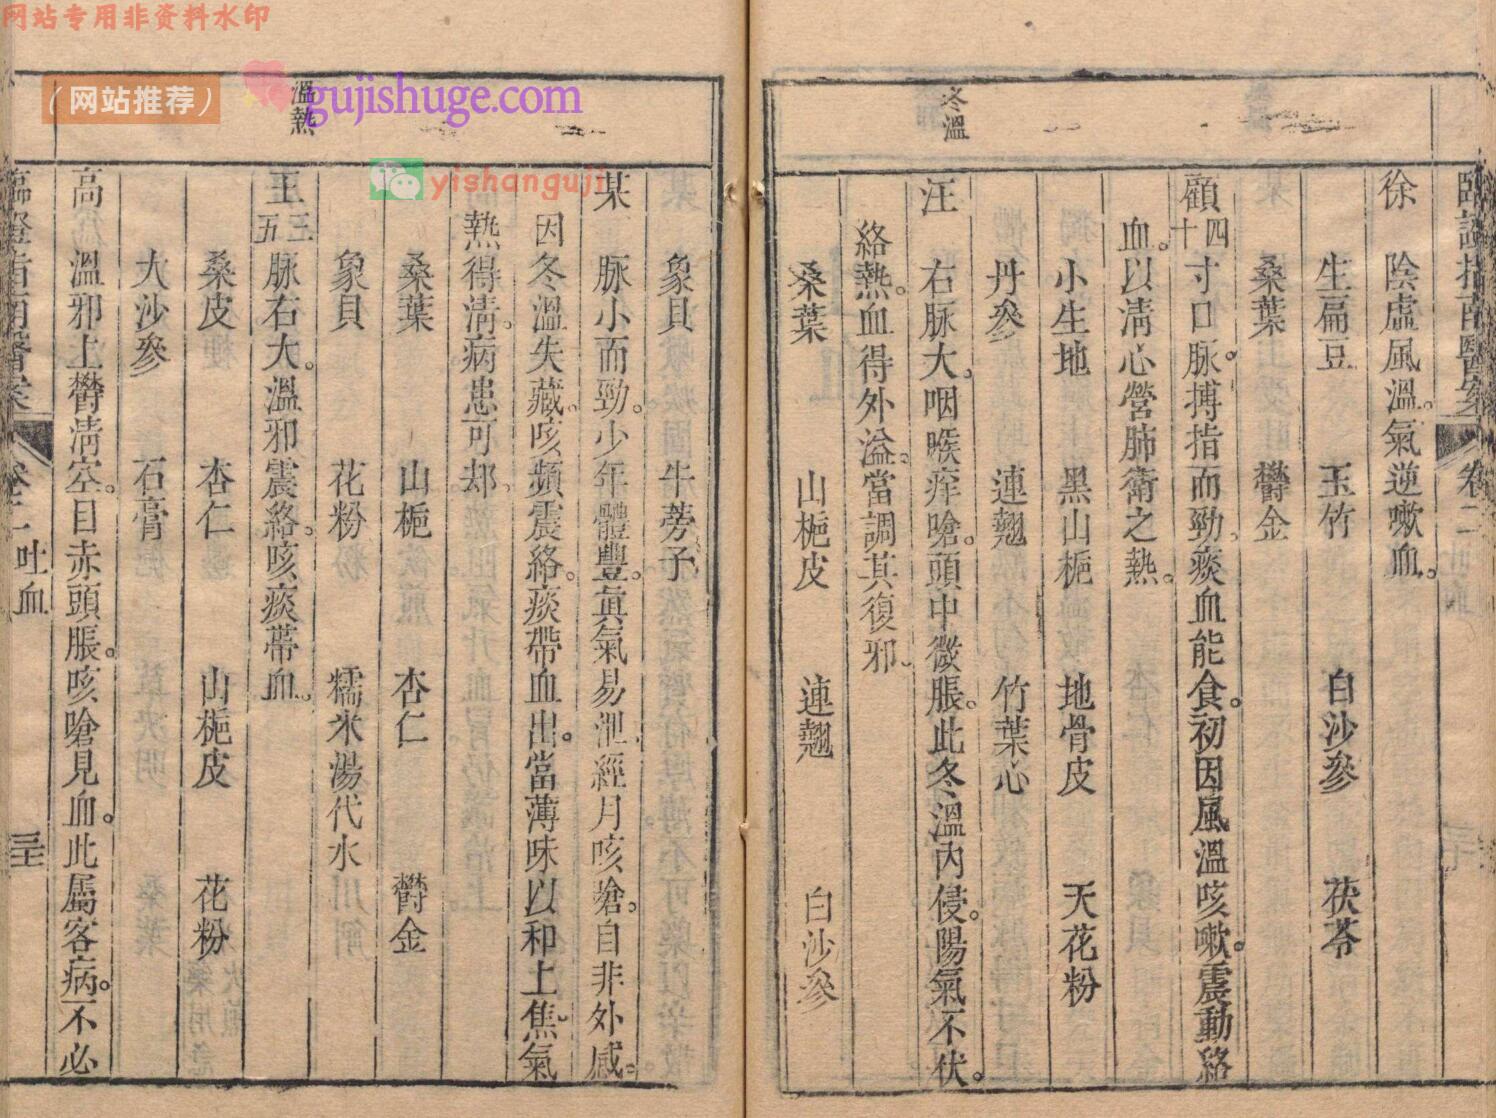 网站专用非资料水印
（网站推荐）
gujishuge.com
yishanguji
臨證指南醫案 卷二
徐 陰虛風溫。氣逆嗽血。
生扁豆 玉竹 白沙參 茯苓
桑葉 鬱金
顧四十 寸口脈搏指而勁。痰血能食。初因風溫咳嗽。震動絡
血。以淸心營肺衛之熱。
小生地 黑山梔 地骨皮 天花粉
丹參 連翹 竹葉心
冬溫
汪 右脈大。咽喉痒嗆。頭中微脹。此冬溫內侵。陽氣不伏。
絡熱。血得外溢。當調其復邪。
桑葉 山梔皮 連翹 白沙參
象貝 牛蒡子
某 脈小而勁。少年體豐。眞氣易泄。經月咳嗆。自非外感。
因冬溫失藏。咳頻震絡。痰帶血出。當薄味以和上焦。氣
熱得淸。病患可却。
桑葉 山梔 杏仁 鬱金
象貝 花粉 糯米湯代水 川斛
溫熱
王三五 脈右大。溫邪震絡。咳痰帶血。
桑皮 杏仁 山梔皮 花粉
大沙參 石膏
高 溫邪上鬱淸空。目赤頭脹。咳嗆見血。此屬客病。不必
臨證指南醫案 卷二 吐血 三十